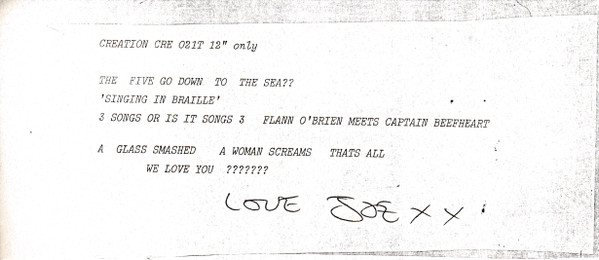 CREATION CRE 021T 12" only
THE FIVE GO DOWN TO THE SEA??
'SINGING IN BRAILLE'
3 SONGS OR IS IT SONGS 3 FLANN O'BRIEN MEETS CAPTAIN BEEFHEART
A GLASS SMASHED A WOMAN SCREAMS THATS ALL
WE LOVE YOU ???????
LOVE JOE X X